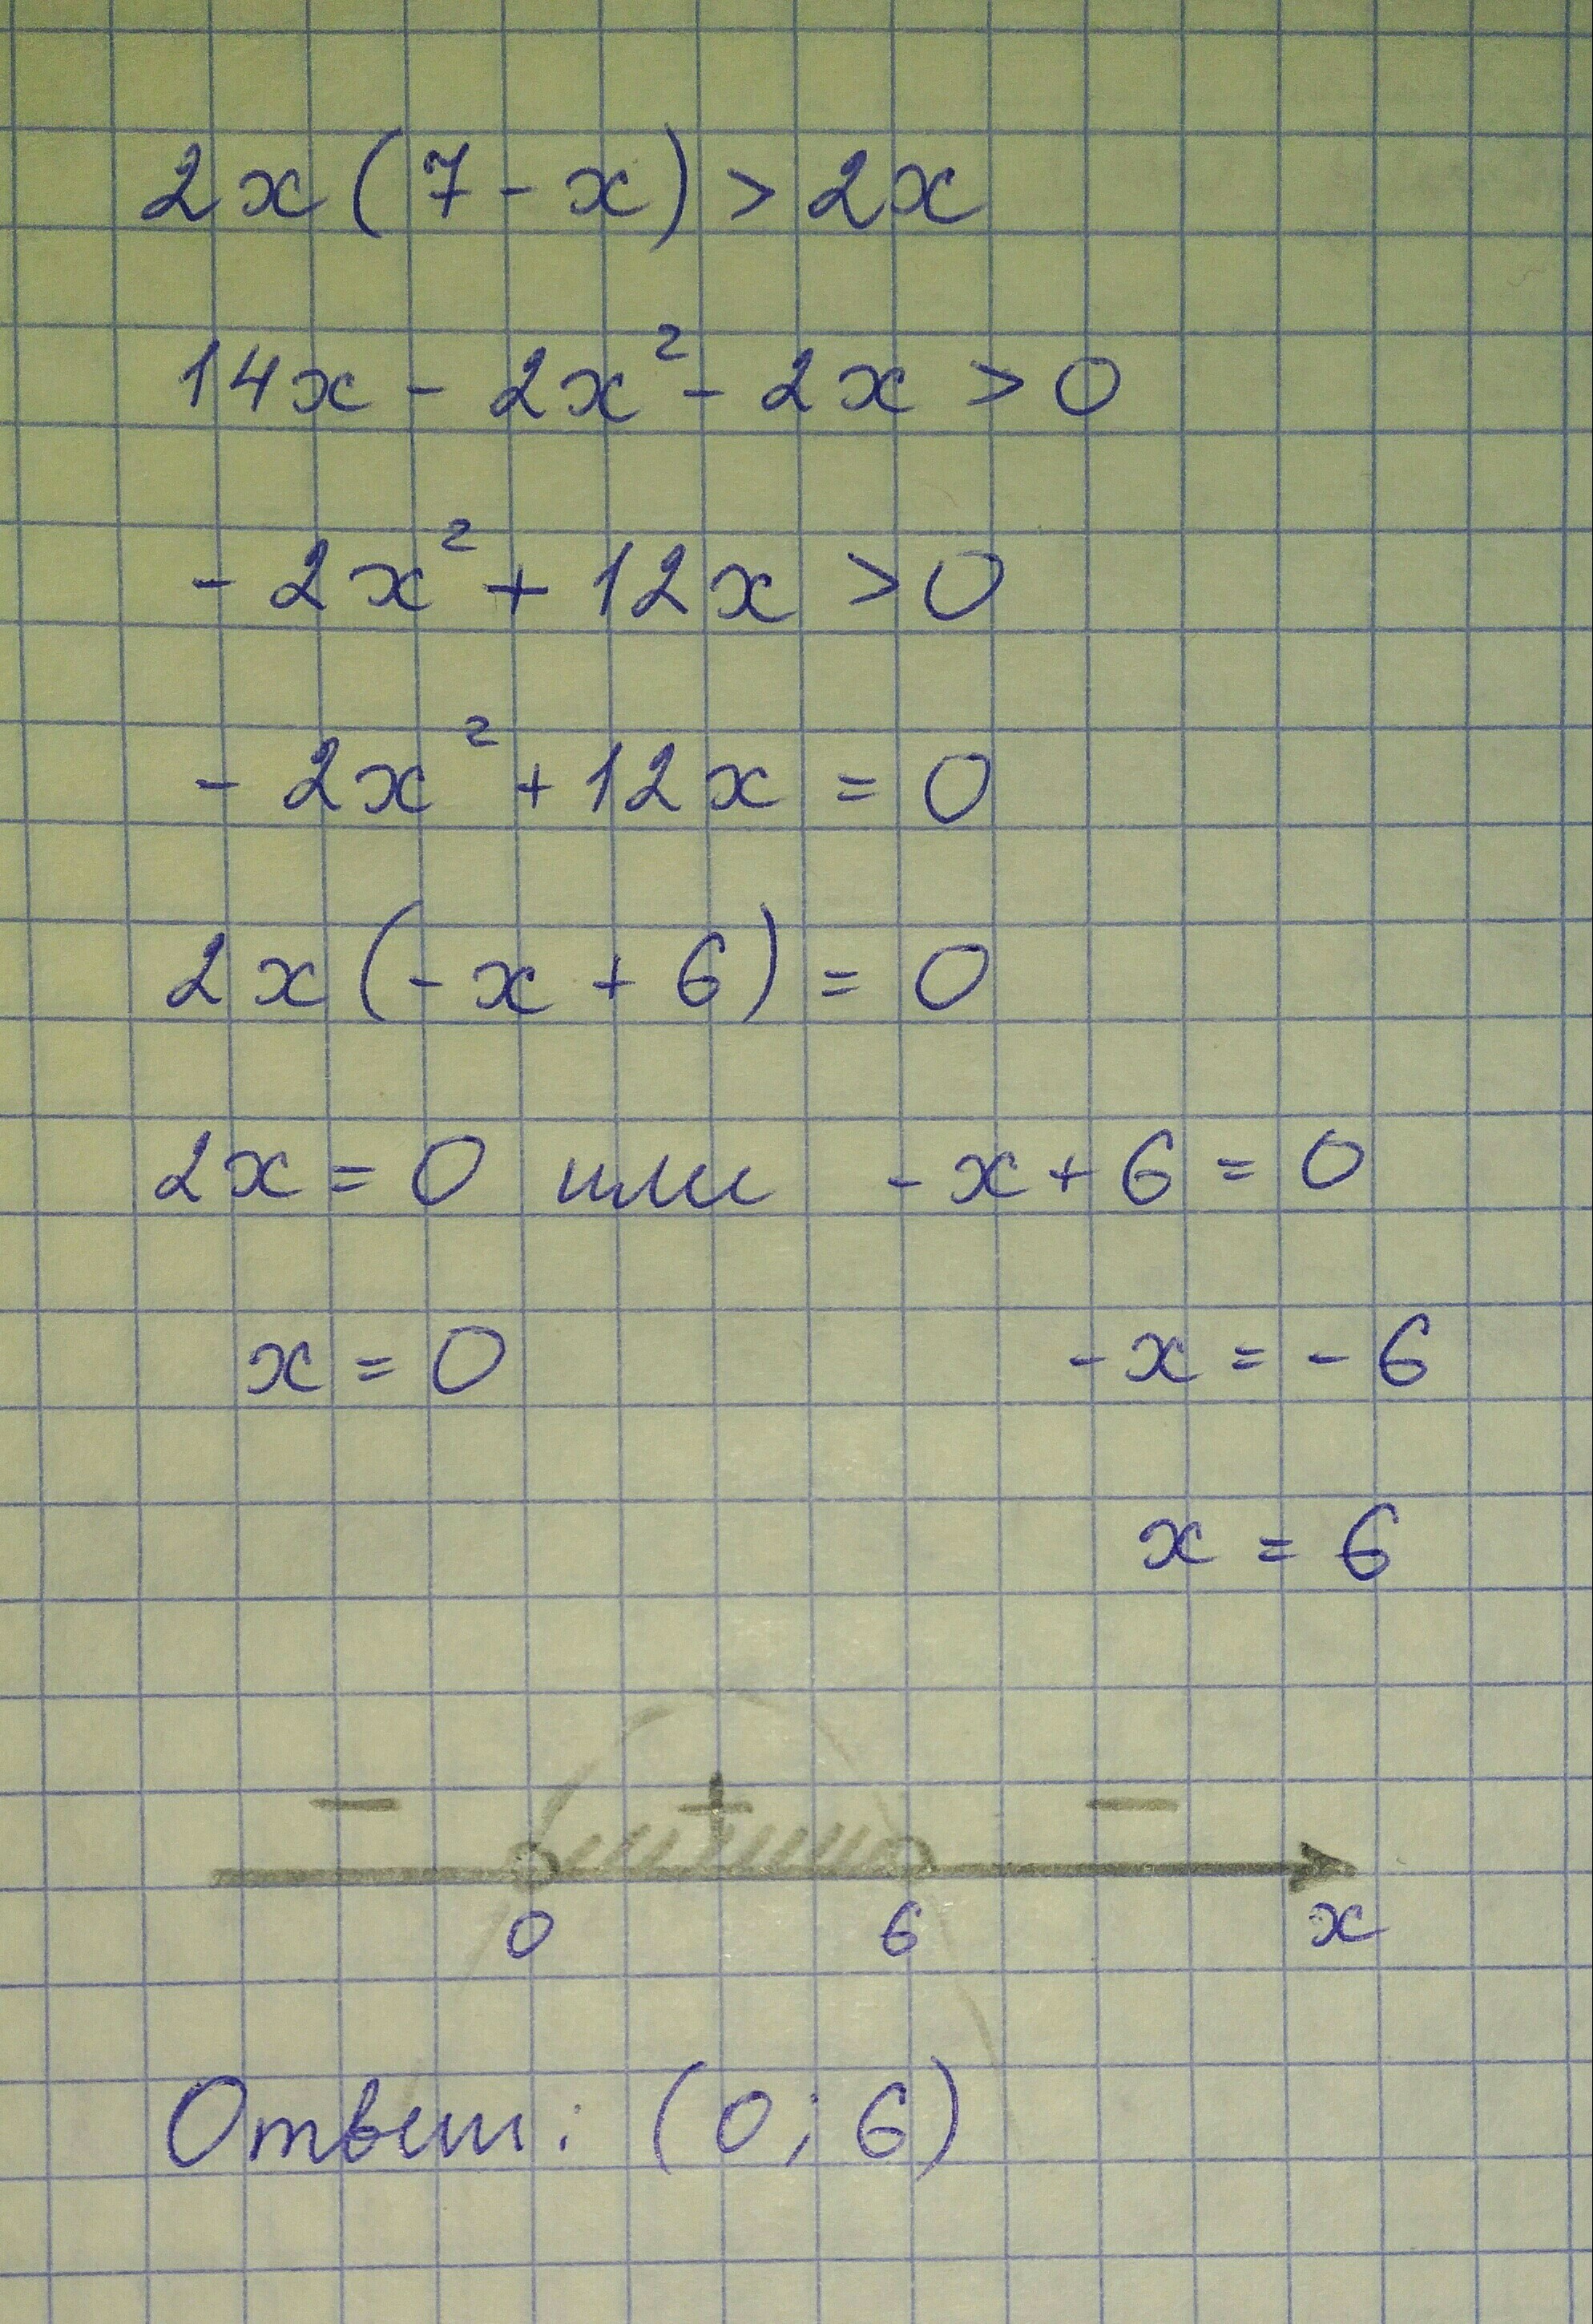 2x(7-x)>2x
14x-2x²-2x>0
-2x²+12x>0
-2x²+12x=0
2x(-x+6)=0
2x=0 или -x+6=0
x=0 -x=-6
x=6
- + -
0 6 x
Ответ: (0;6)